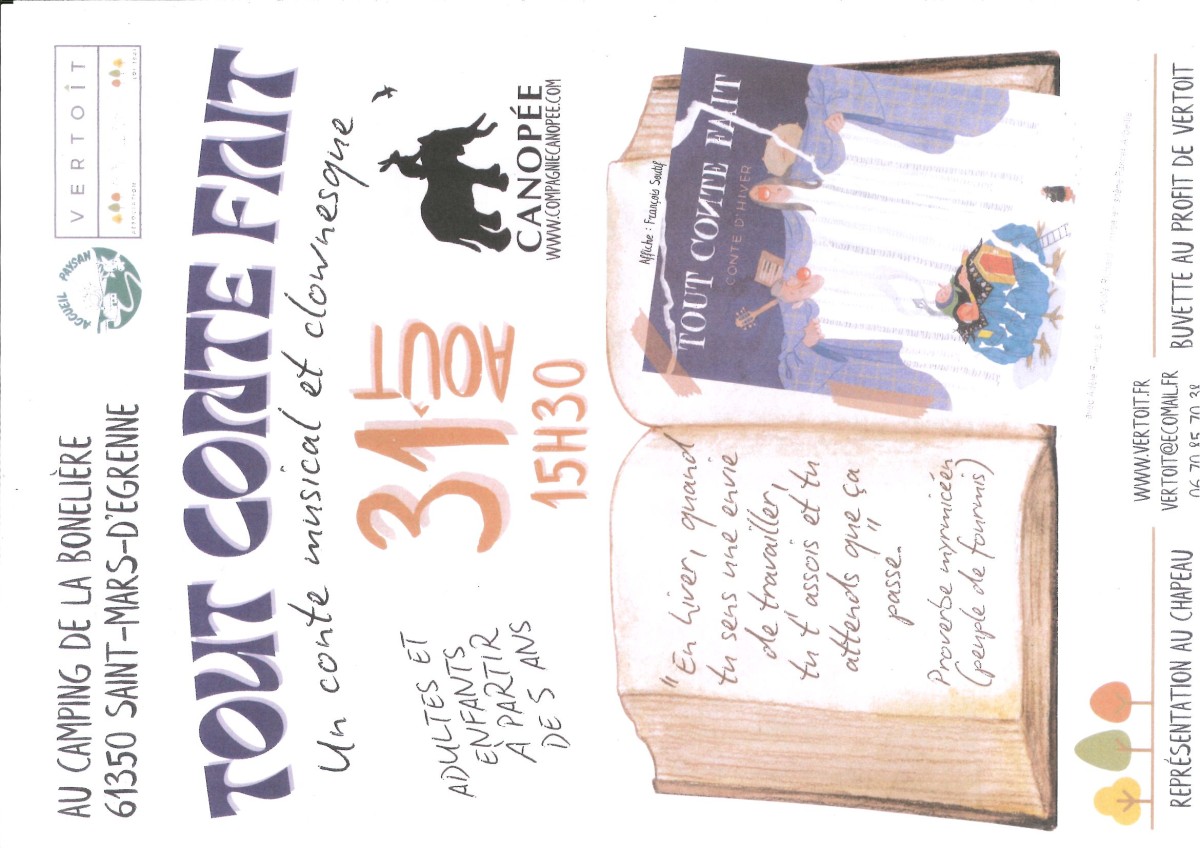 AU CAMPING DE LA BONELIÈRE
61350 SAINT-MARS-D'EGRENNE
ACCUEIL PAYSAN
VERTOÎT
TOUT CONTE FAIT
Un conte musical et clownesque
ADULTES ET
ENFANTS
À PARTIR
DE 5 ANS
31 AOÛT
15H30
CANOPÉE
WWW.COMPAGNIECANOPEE.COM
"En hiver, quand
tu sens une envie
de travailler,
tu t'assois et tu
attends que ça
passe."
Proverbe myrmicéen
(peuple de fourmis)
Affiche : François Soutif
TOUT CONTE FAIT
CONTE D'HIVER
REPRÉSENTATION AU CHAPEAU
WWW.VERTOIT.FR
VERTOIT@ECOMAIL.FR
06 70 85 70 38
BUVETTE AU PROFIT DE VERTOIT